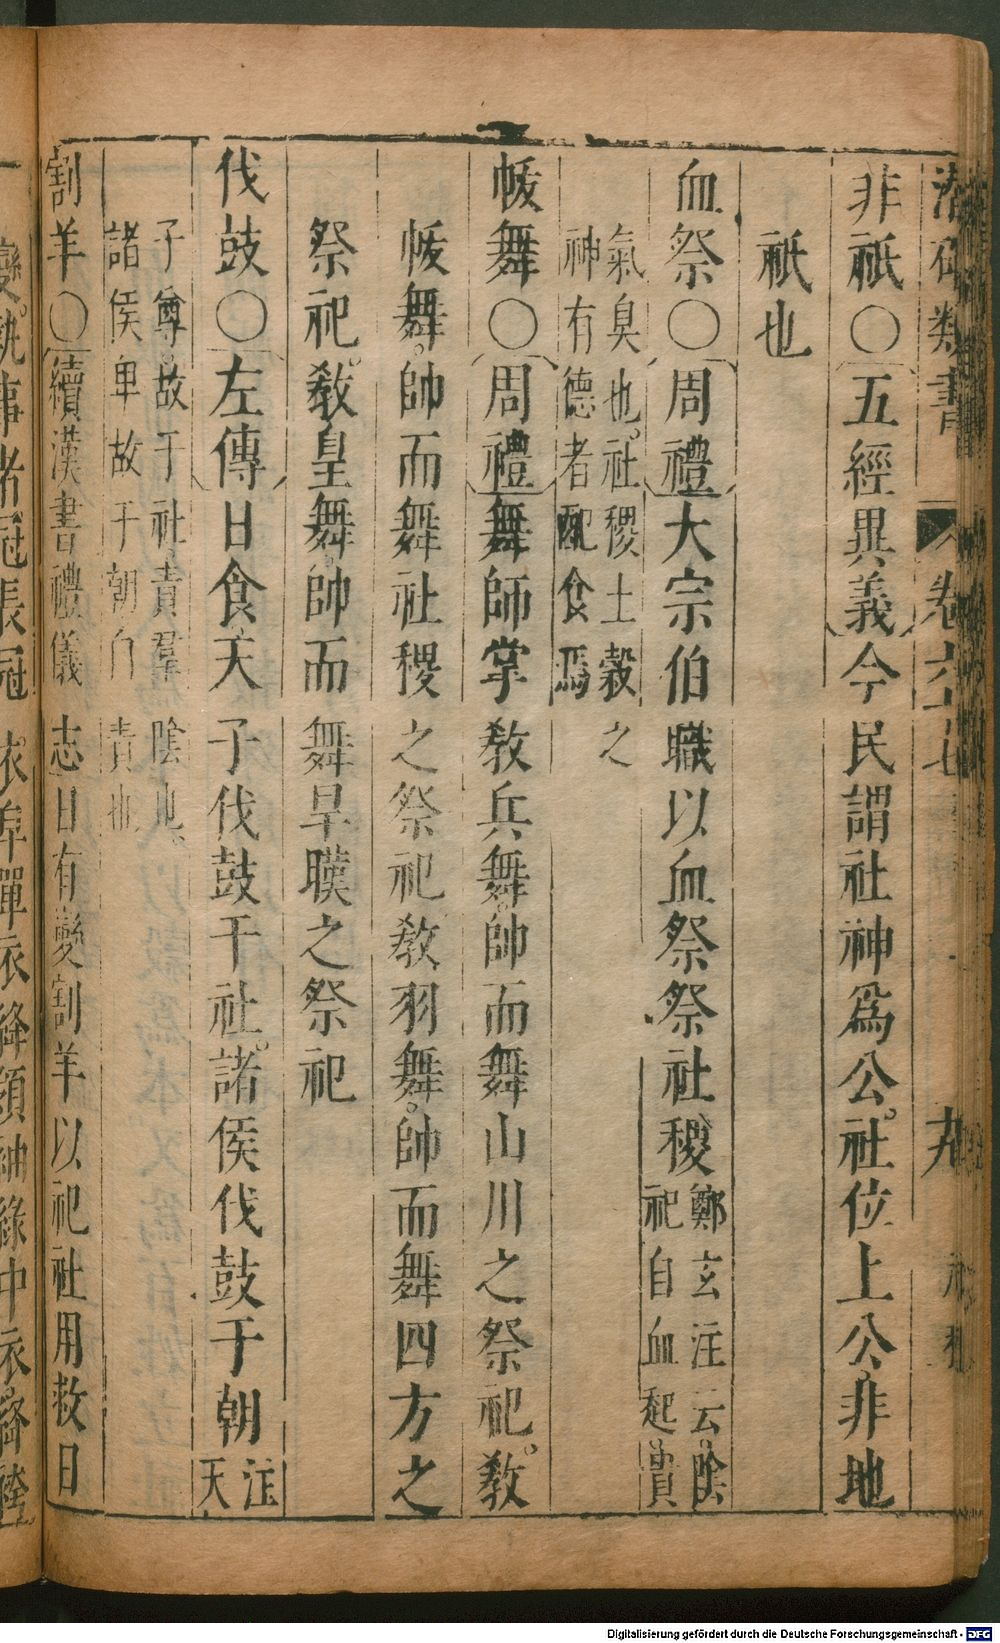 潛確類書 卷六十七
非祇○五經異義今民謂社神爲公社位上公非地
祇也
血祭○周禮大宗伯職以血祭祭社稷鄭玄注云陰祀自血起貴
氣臭也社稷土穀之神有德者配食焉
帗舞○周禮舞師掌敎兵舞帥而舞山川之祭祀敎
帗舞帥而舞社稷之祭祀敎羽舞帥而舞四方之
祭祀敎皇舞帥而舞旱暵之祭祀
伐鼓○左傳日食天子伐鼓于社諸侯伐鼓于朝注天
子尊故于社責羣陰也諸侯卑故于朝自責也
割羊○續漢書禮儀志日有變割羊以祀社用救日
變執事者冠長冠衣皁單衣絳領袖緣中衣絳袴
Digitalisierung gefördert durch die Deutsche Forschungsgemeinschaft - DFG